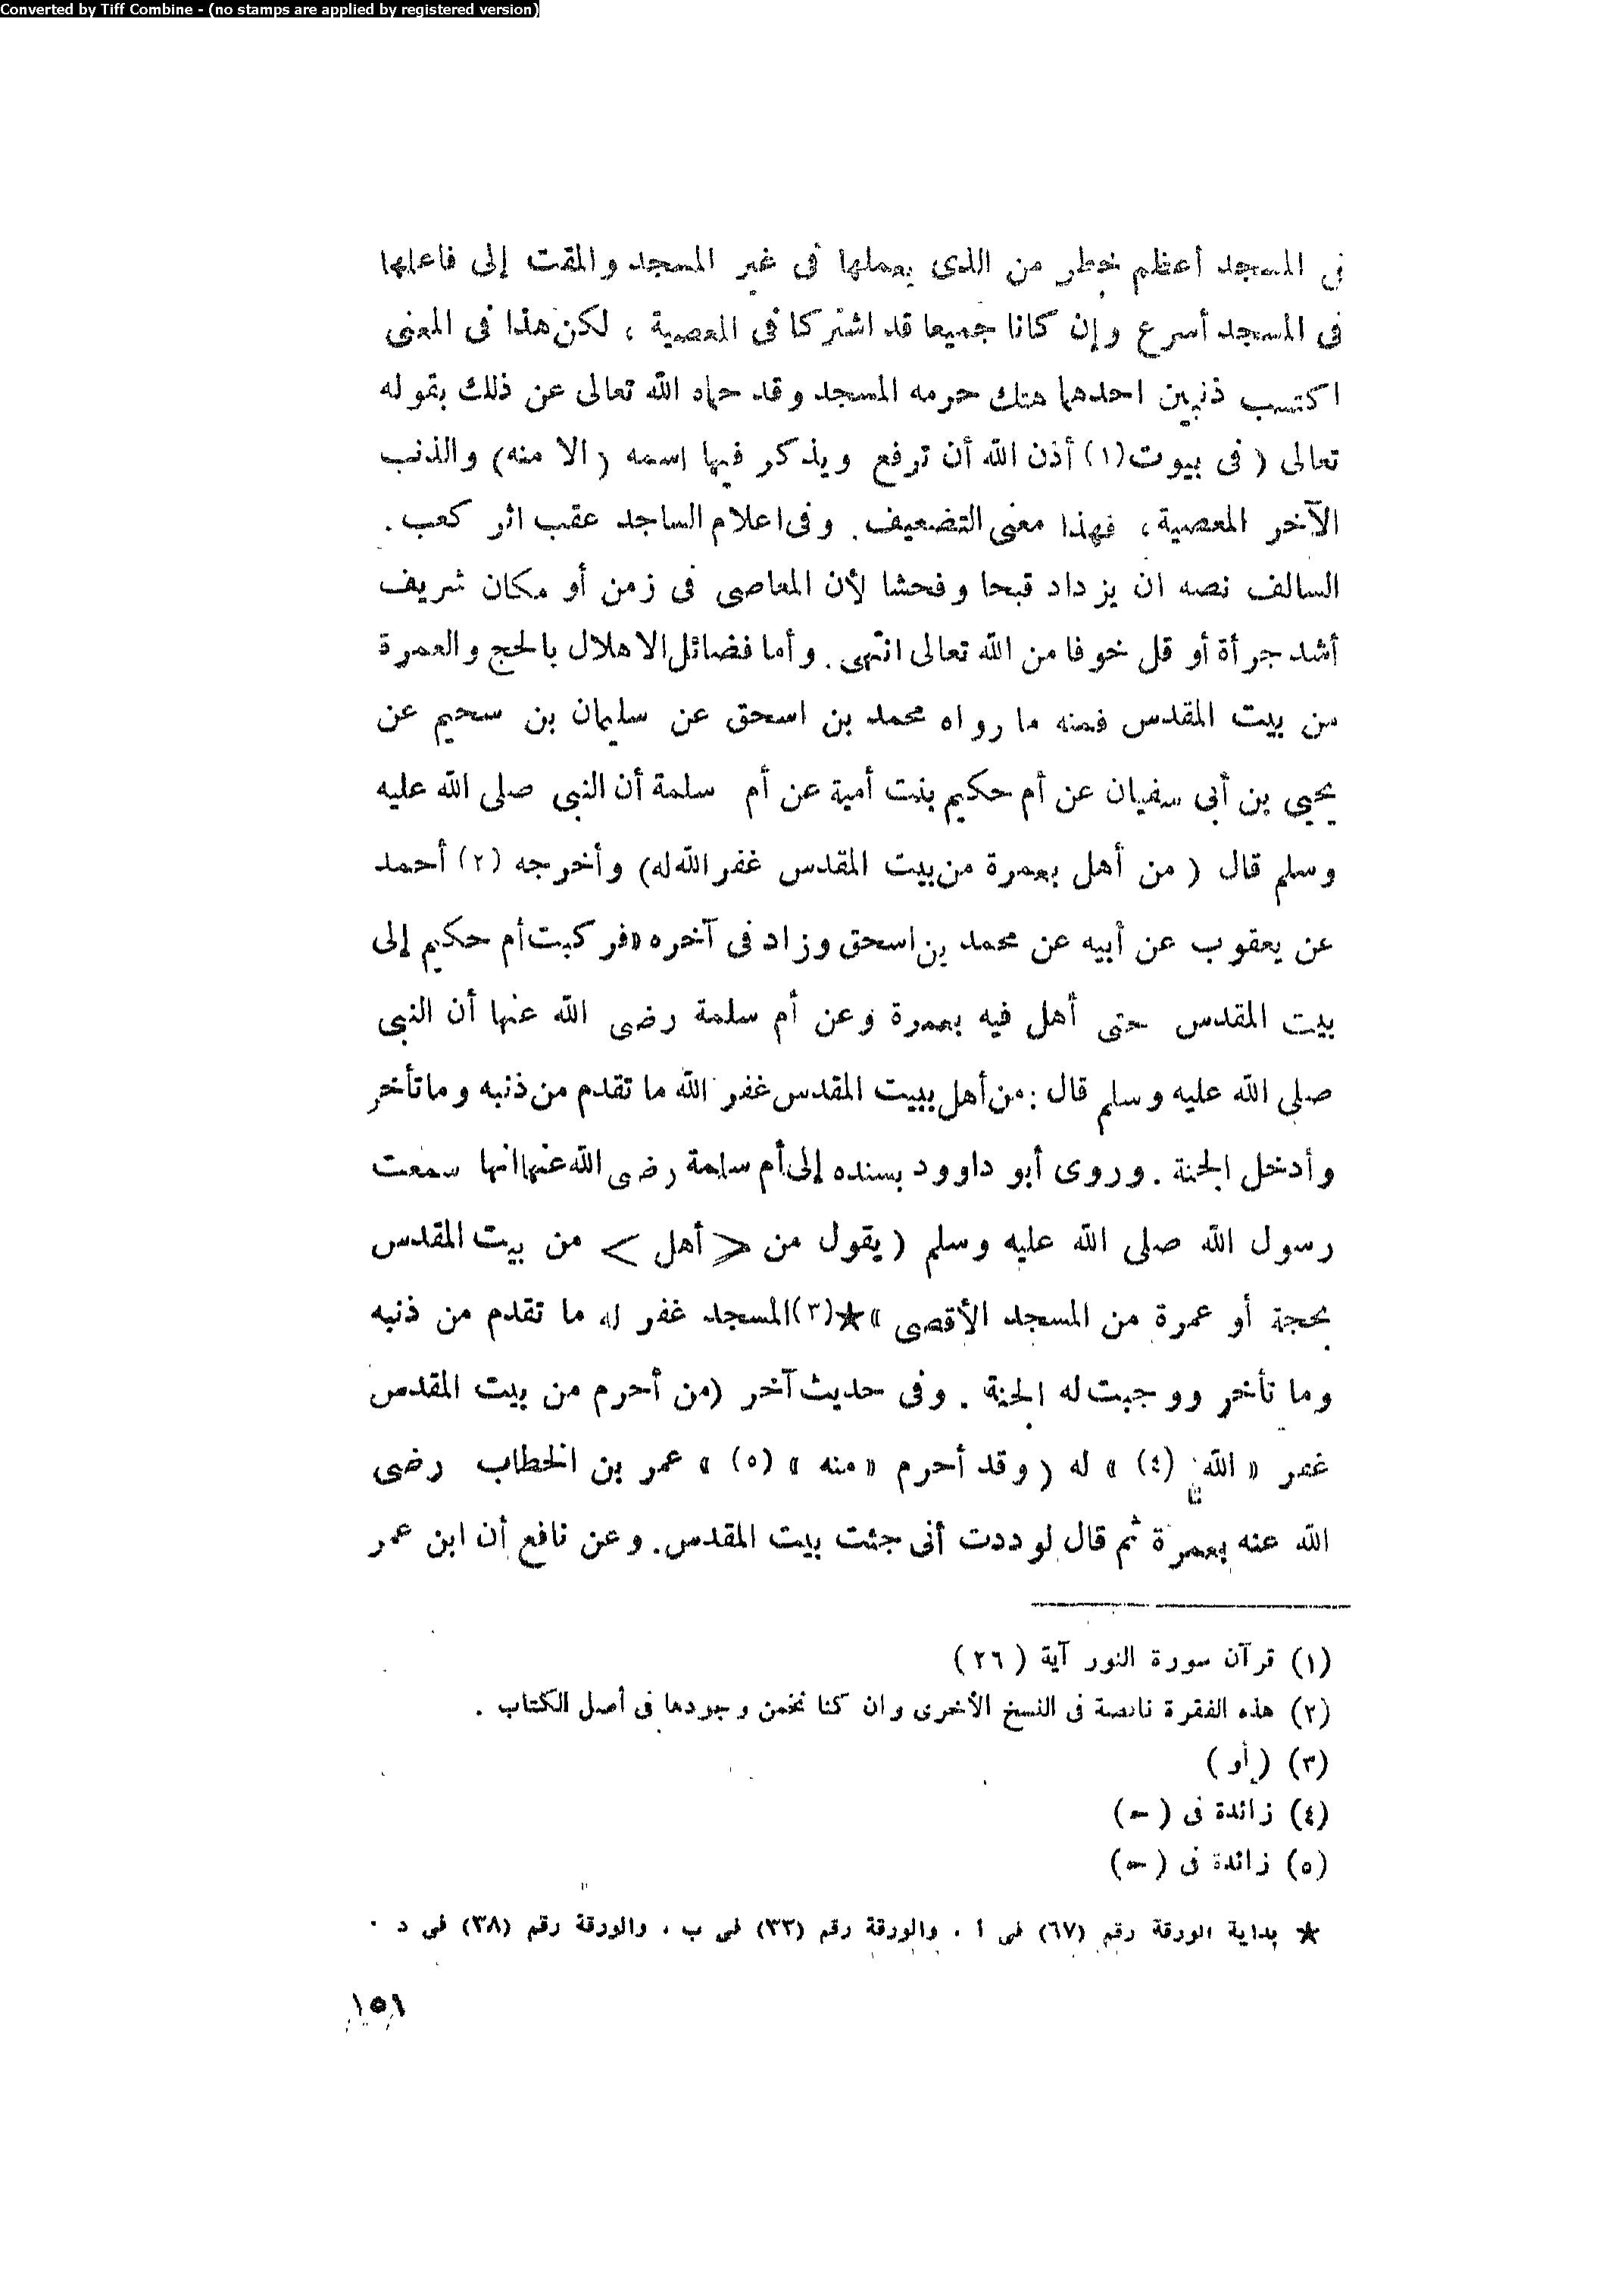 Converted by Tiff Combine - (no stamps are applied by registered version)
فى المسجد أعظم خطر من الذى يعملها فى غير المسجد والمقت إلى فاعلها
فى المسجد أسرع وإن كانا جميعا قد اشتركا فى المعصية ، لكن هذا فى المعنى
اكتسب ذنبين احدهما هتك حرمه المسجد وقد حماه الله تعالى عن ذلك بقوله
تعالى ( فى بيوت (١) أذن الله أن ترفع ويذكر فيها اسمه ( الا منه) والذنب
الآخر المعصية ، فهذا معنى التضعيف . وفى اعلام الساجد عقب اثر كعب .
السالف نصه ان يزداد قبحا وفحشا لأن المعاصى فى زمن أو مكان شريف
أشد جرأة أو قل خوفا من الله تعالى انتهى . وأما فضائل الاهلال بالحج والعمرة
من بيت المقدس فمنه ما رواه محمد بن اسحق عن سليمان بن سحيم عن
يحيى بن أبى سفيان عن أم حكيم بنت أمية عن أم سلمة أن النبى صلى الله عليه
وسلم قال ( من أهل بعمرة من بيت المقدس غفر الله له) وأخرجه (٢) أحمد
عن يعقوب عن أبيه عن محمد بن اسحق وزاد فى آخره «فركبت أم حكيم إلى
بيت المقدس حتى أهل فيه بعمرة وعن أم سلمة رضى الله عنها أن النبى
صلى الله عليه وسلم قال : من أهل ببيت المقدس غفر الله ما تقدم من ذنبه وما تأخر
وأدخل الجنة . وروى أبو داوود بسنده إلى أم سلمة رضى الله عنها انها سمعت
رسول الله صلى الله عليه وسلم ( يقول من < أهل > من بيت المقدس
بحجة أو عمرة من المسجد الأقصى » ★ (٣) المسجد غفر له ما تقدم من ذنبه
وما تأخر ووجبت له الجنة . وفى حديث آخر (من أحرم من بيت المقدس
غفر « الله (٤) » له ( وقد أحرم « منه » (٥) » عمر بن الخطاب رضى
الله عنه بعمرة ثم قال لوددت أنى جئت بيت المقدس . وعن نافع أن ابن عمر
(١) قرآن سورة النور آية ( ٢٦ )
(٢) هذه الفقرة ناقصة فى النسخ الأخرى وان كنا نخمن وجودها فى أصل الكتاب .
(٣) ( أو )
(٤) زائدة فى ( ح )
(٥) زائدة فى ( ح )
★ بداية الورقة رقم (٦٧) فى أ . والورقة رقم (٣٣) فى ب . والورقة رقم (٣٨) فى د .
١٥٦